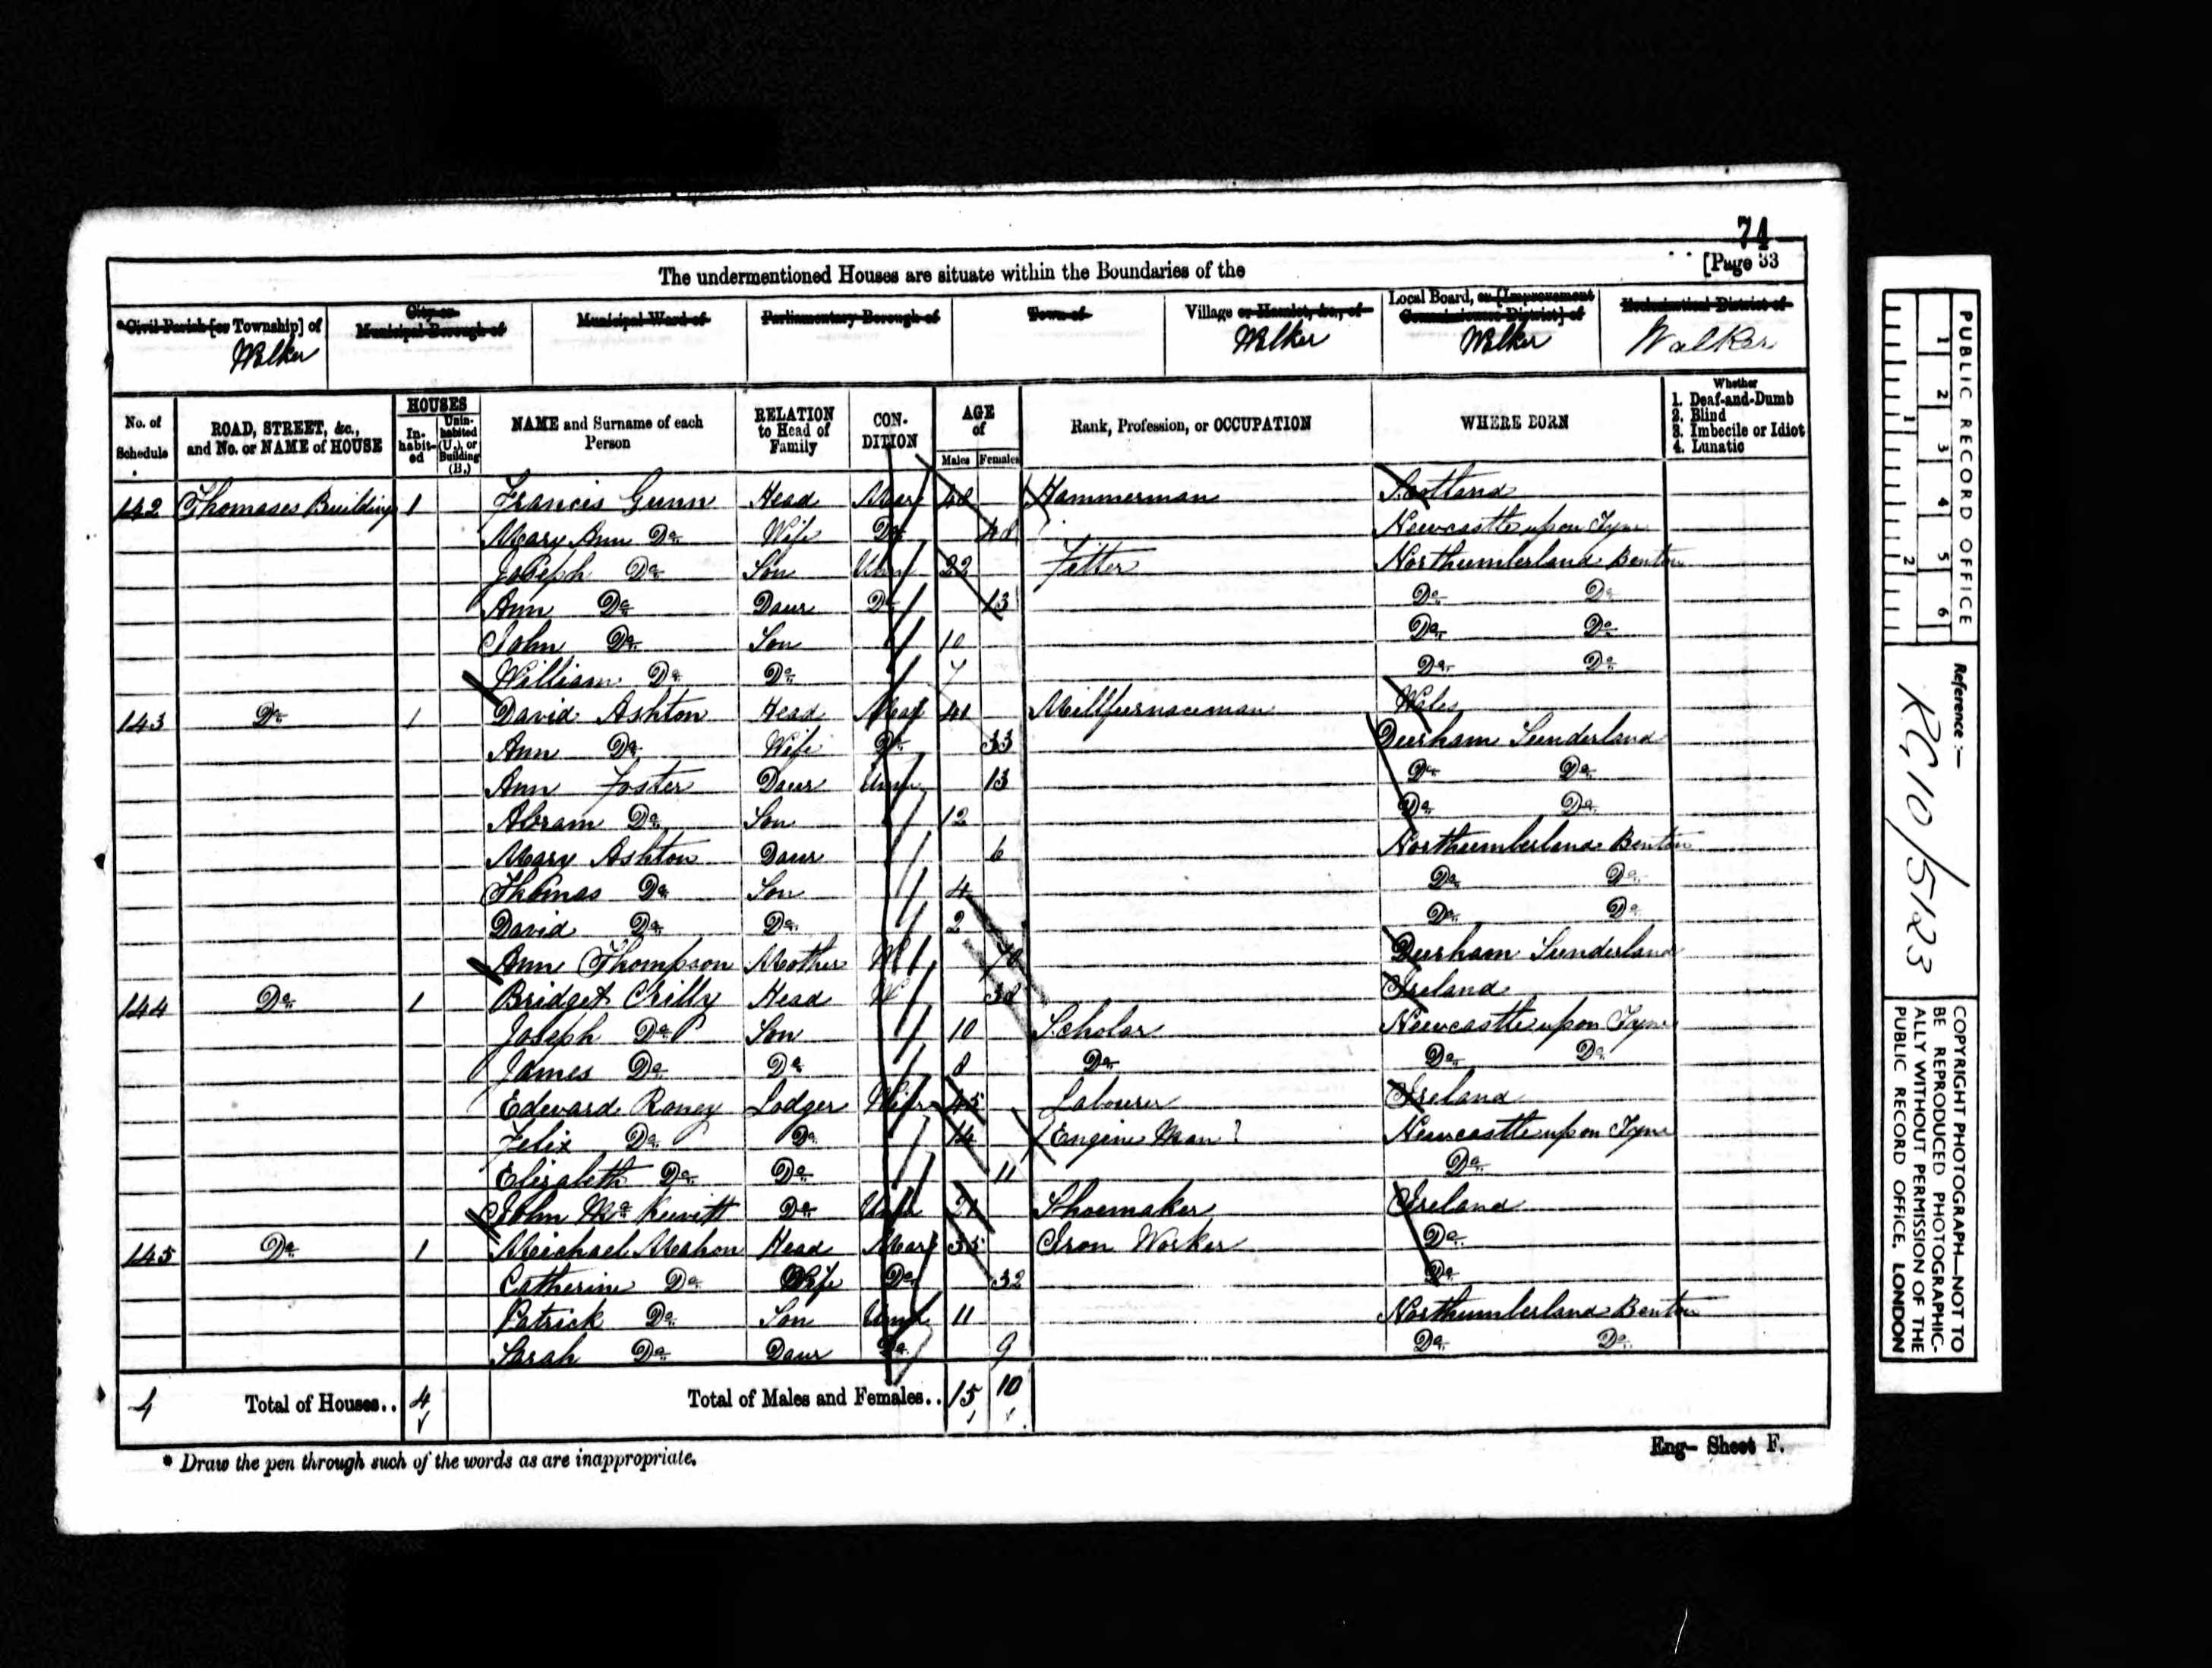 74
The undermentioned Houses are situate within the Boundaries of the [Page 33
*Civil Parish [or Township] of Walker
City or Municipal Borough of
Municipal Ward of
Parliamentary Borough of
Town of
Village or Hamlet, &c., of Walker
Local Board, or [Improvement Commissioners District] of Walker
Ecclesiastical District of Walker
No. of Schedule
ROAD, STREET, &c., and No. or NAME of HOUSE
HOUSES
In-habit-ed
Unin-habited (U.), or Building (B.)
NAME and Surname of each Person
RELATION to Head of Family
CON-DITION
AGE of
Males Females
Rank, Profession, or OCCUPATION
WHERE BORN
Whether
1. Deaf-and-Dumb
2. Blind
3. Imbecile or Idiot
4. Lunatic
142 Thomases Building 1 Francis Gunn Head Mar 48 Hammerman Scotland
Mary Ann Do Wife Do 48 Newcastle upon Tyne
Joseph Do Son Unm 22 Fitter Northumberland Benton
Ann Do Daur Do 13 Do Do
John Do Son 10 Do Do
William Do Do 7 Do Do
143 Do 1 David Ashton Head Mar 41 Millfurnaceman Wales
Ann Do Wife Do 33 Durham Sunderland
Ann Foster Daur Unm 13 Do Do
Abram Do Son 12 Do Do
Mary Ashton Daur 6 Northumberland Benton
Thomas Do Son 4 Do Do
David Do Do 2 Do Do
Ann Thompson Mother W 70 Durham Sunderland
144 Do 1 Bridget Crilly Head W 38 Ireland
Joseph Do Son 10 Scholar Newcastle upon Tyne
James Do Do 8 Do Do Do
Edward Roney Lodger Widr 45 Labourer Ireland
Felix Do Do 14 Engine Man ? Newcastle upon Tyne
Elizabeth Do Do 11 Do
John Mc Keevitt Do Unm Shoemaker Ireland
145 Do 1 Meichael Mahon Head Mar 35 Iron Worker Do
Catherine Do Wife Do 32 Do
Patrick Do Son Unm 11 Northumberland Benton
Sarah Do Daur Do 9 Do Do
4 Total of Houses.. 4 Total of Males and Females.. 15 10
* Draw the pen through such of the words as are inappropriate.
Eng- Sheet F.
PUBLIC RECORD OFFICE
1 2 3 4 5 6
1 2
Reference :-
RG 10/5123
COPYRIGHT PHOTOGRAPH—NOT TO
BE REPRODUCED PHOTOGRAPHIC-
ALLY WITHOUT PERMISSION OF THE
PUBLIC RECORD OFFICE, LONDON